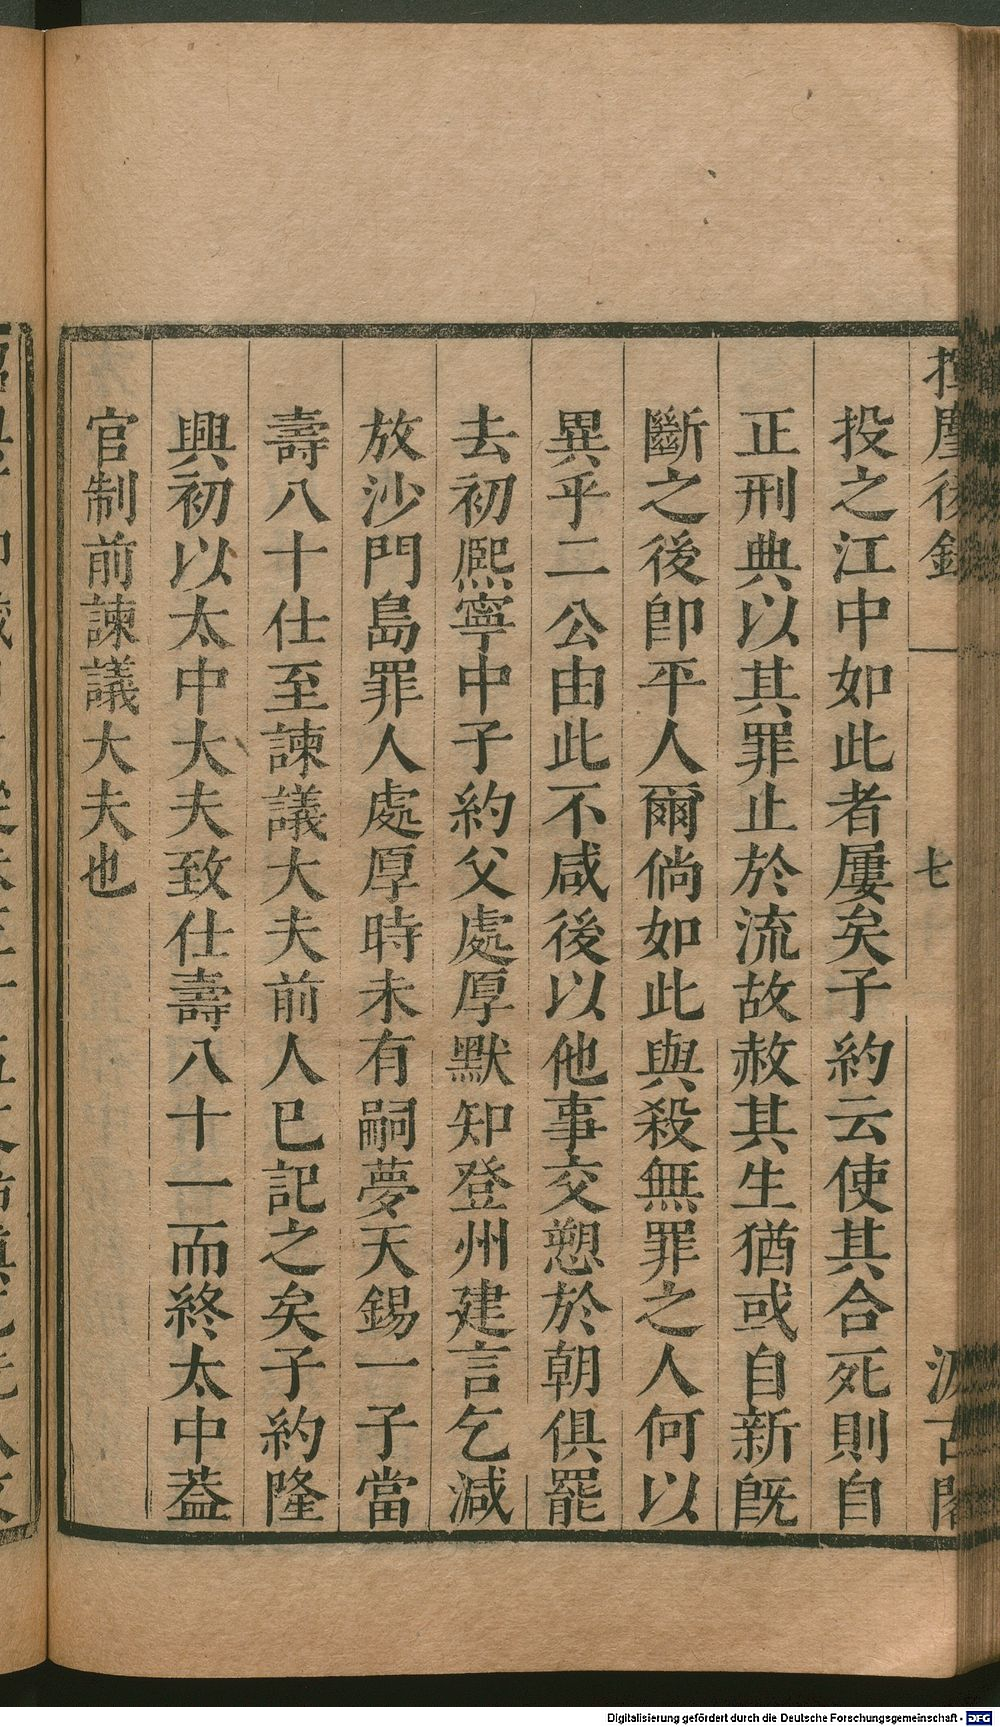 揮麈後錄 一 七 汲古閣
投之江中如此者屢矣子約云使其合死則自
正刑典以其罪止於流故赦其生猶或自新旣
斷之後卽平人爾倘如此與殺無罪之人何以
異乎二公由此不咸後以他事交愬於朝俱罷
去初熈寧中子約父處厚默知登州建言乞減
放沙門島罪人處厚時未有嗣夢天錫一子當
壽八十仕至諫議大夫前人已記之矣子約隆
興初以太中大夫致仕壽八十一而終太中葢
官制前諫議大夫也
Digitalisierung gefördert durch die Deutsche Forschungsgemeinschaft - DFG